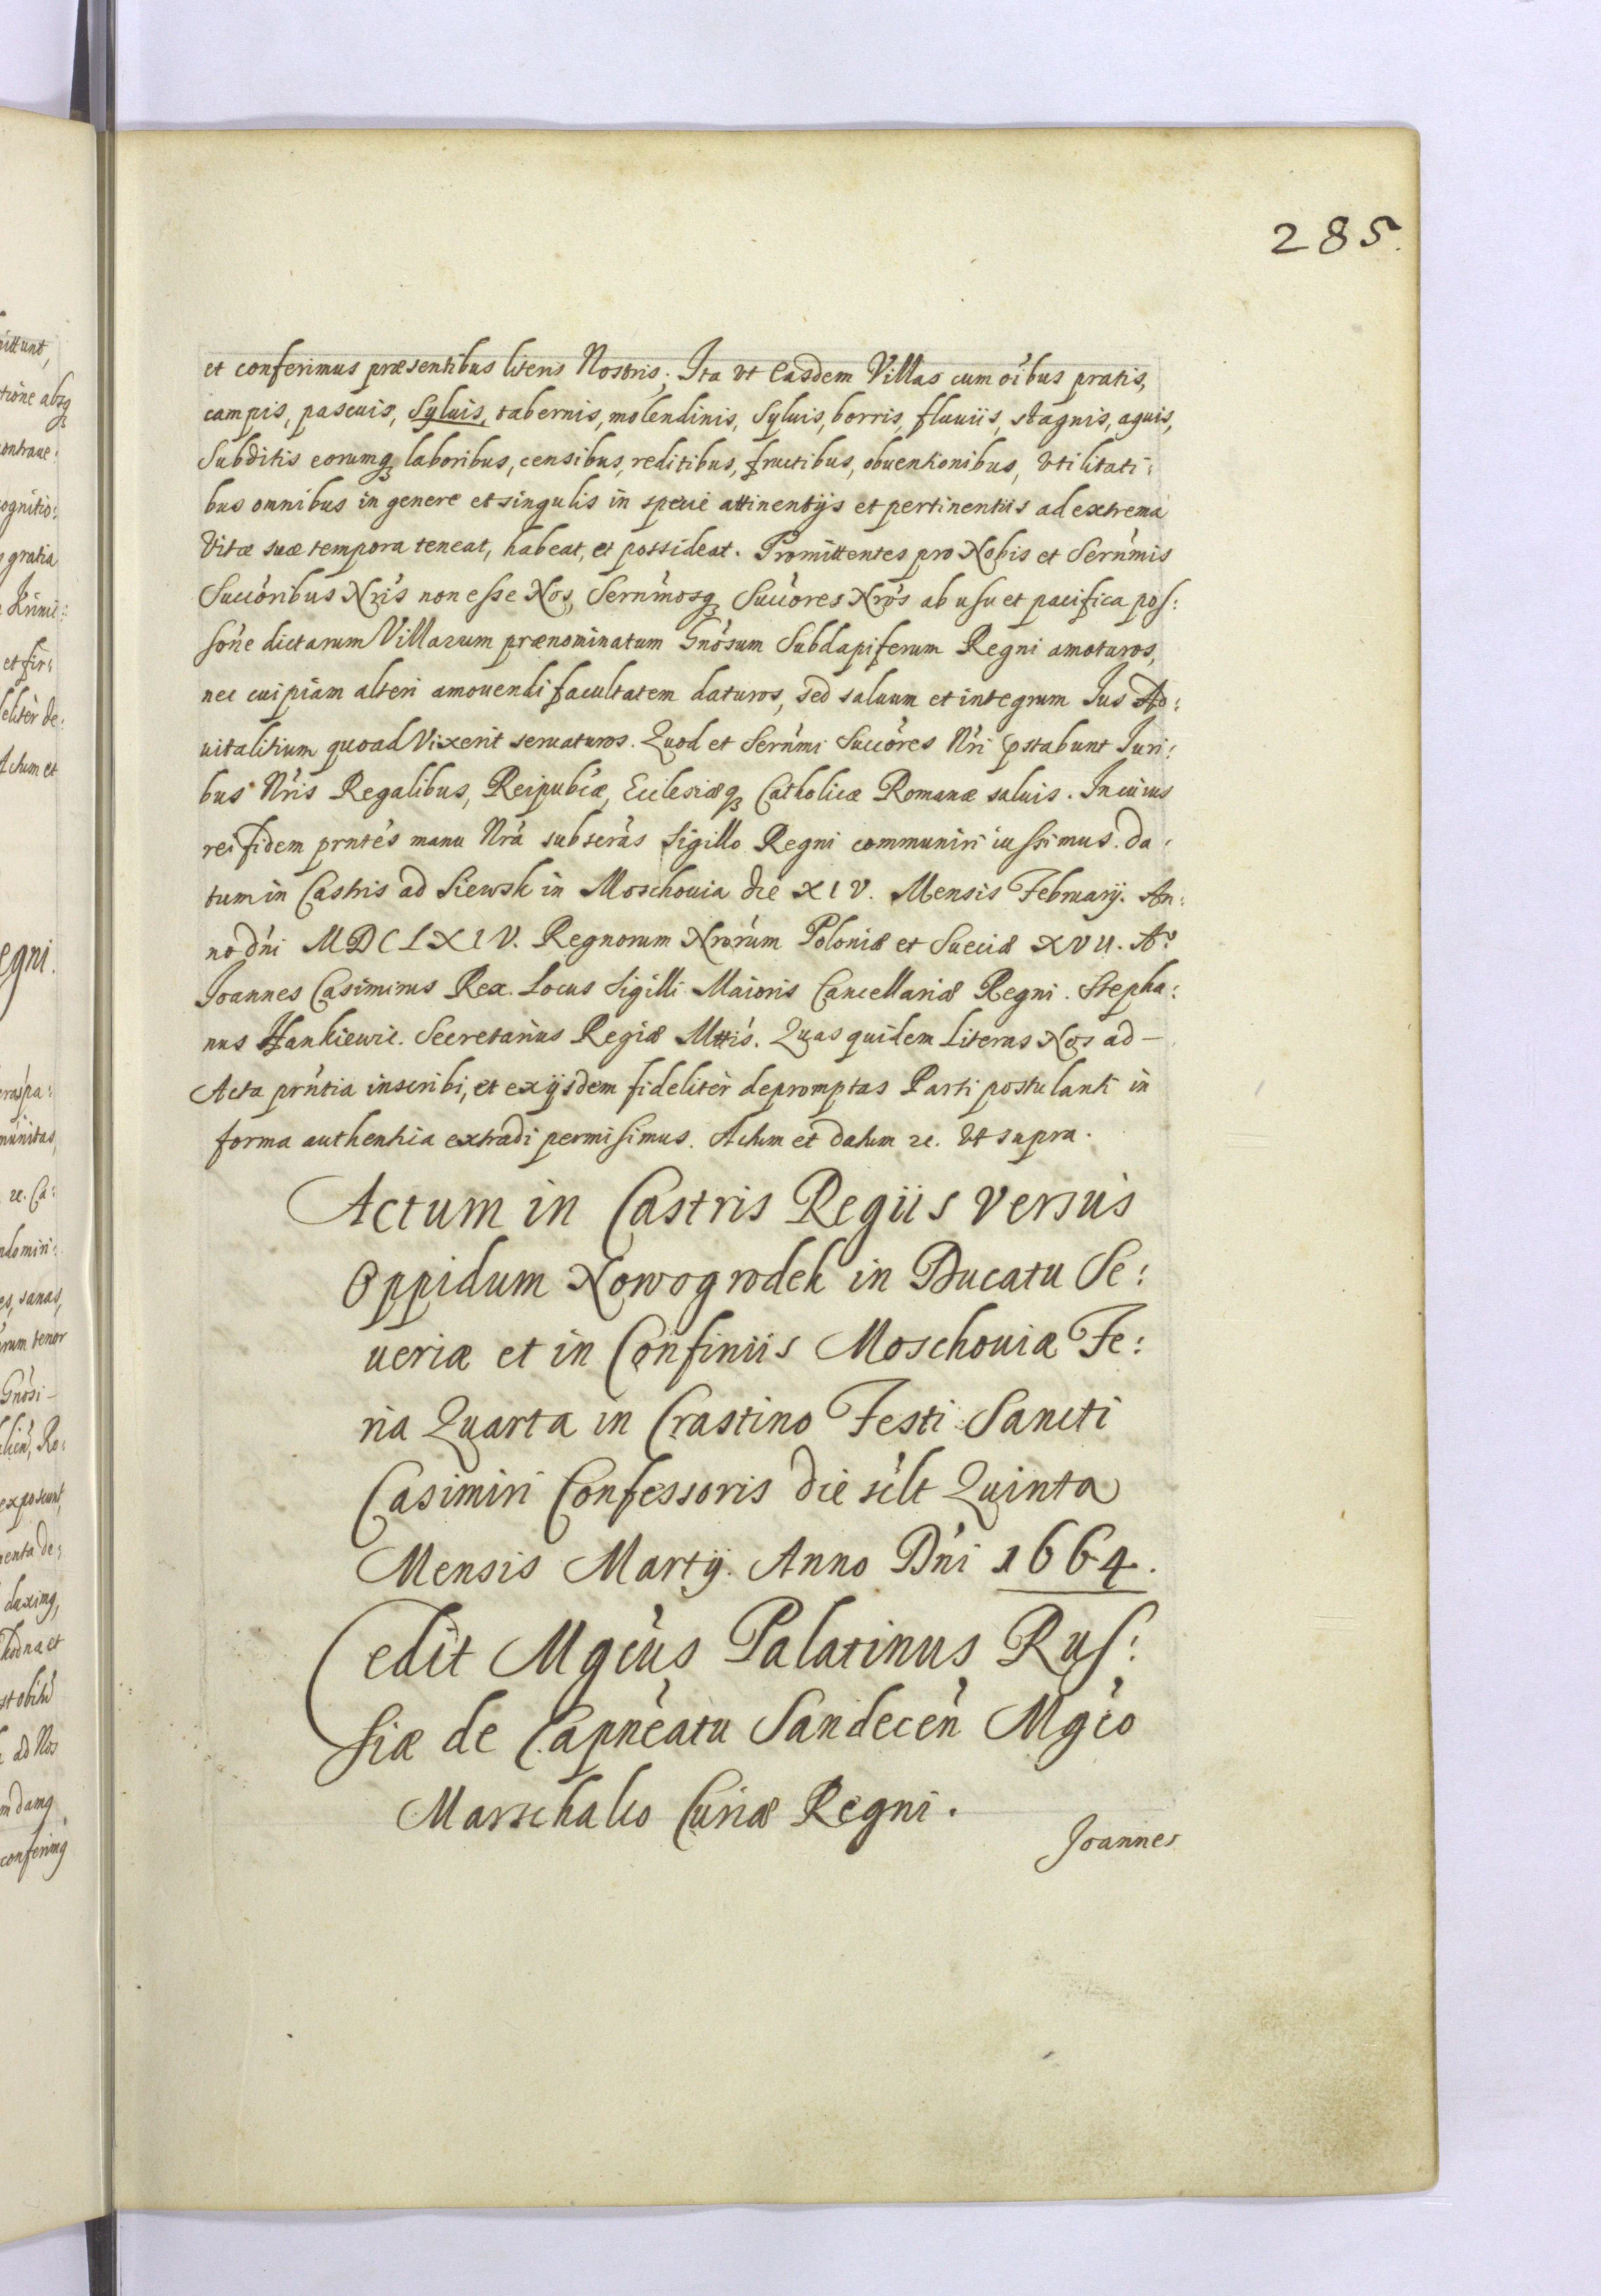 285.
et conferimus præsentibus literis Nostris. Ita vt easdem Villas cum oibus pratis,
campis, pascuis, syluis, tabernis, molendinis, Syluis, borris, fluuiis, stagnis, aquis,
Subditis eorumq laboribus, censibus, reditibus, fructibus, obuentionibus, vtilitati:
bus omnibus in genere et singulis in specie attinentijs et pertinentiis ad extrema
Vitæ suæ tempora teneat, habeat, et possideat. Promittentes pro Nobis et Sernmis
Succoribus Nris non esse Nos, Sernmosq Succores Nros ab usu et pacifica pos:
sone dictarum Villarum prænominatum Gnosum Subdapiferum Regni amoturos,
nec cuipiam alteri amouendi facultatem daturos, sed saluum et integrum Ius Ad:
uitalitium quoad Vixerit seruaturos. Quod et Sernmi Succores Nri pstabunt Iuri:
bus Nris Regalibus, Reipubcæ, Ecclesiæq Catholicæ Romanæ saluis. In cuius
rei fidem prntes manu Nra subscras sigillo Regni communiri iussimus. Da:
tum in Castris ad Siewsk in Moschouia die XIV. Mensis February. An:
no dni MDCLXIV. Regnorum Nrorum Poloniæ et Sueciæ XVII. Ao
Joannes Casimirus Rex. Locus Sigilli Maioris Cancellariæ Regni. Stepha:
nus Hankiewic. Secretarius Regiæ Mttis. Quas quidem Literas Nos ad –
Acta prntia inscribi, et ex ijsdem fideliter depromptas Parti postulanti in
forma authentica extradi permisimus. Actum et datum &c. vt supra.
Actum in Castris Regiis versus
Oppidum Nowogrodek in Ducatu Se:
ueriæ et in Confiniis Moschouiæ Fe:
ria Quarta in Crastino Festi Sancti
Casimiri Confessoris die sclt Quinta
Mensis Martij. Anno Dni 1664.
Cedit Mgcus Palatinus Rus:
siæ de Capneatu Sandecen Mgco
Marschalco Curiæ Regni.
Joannes